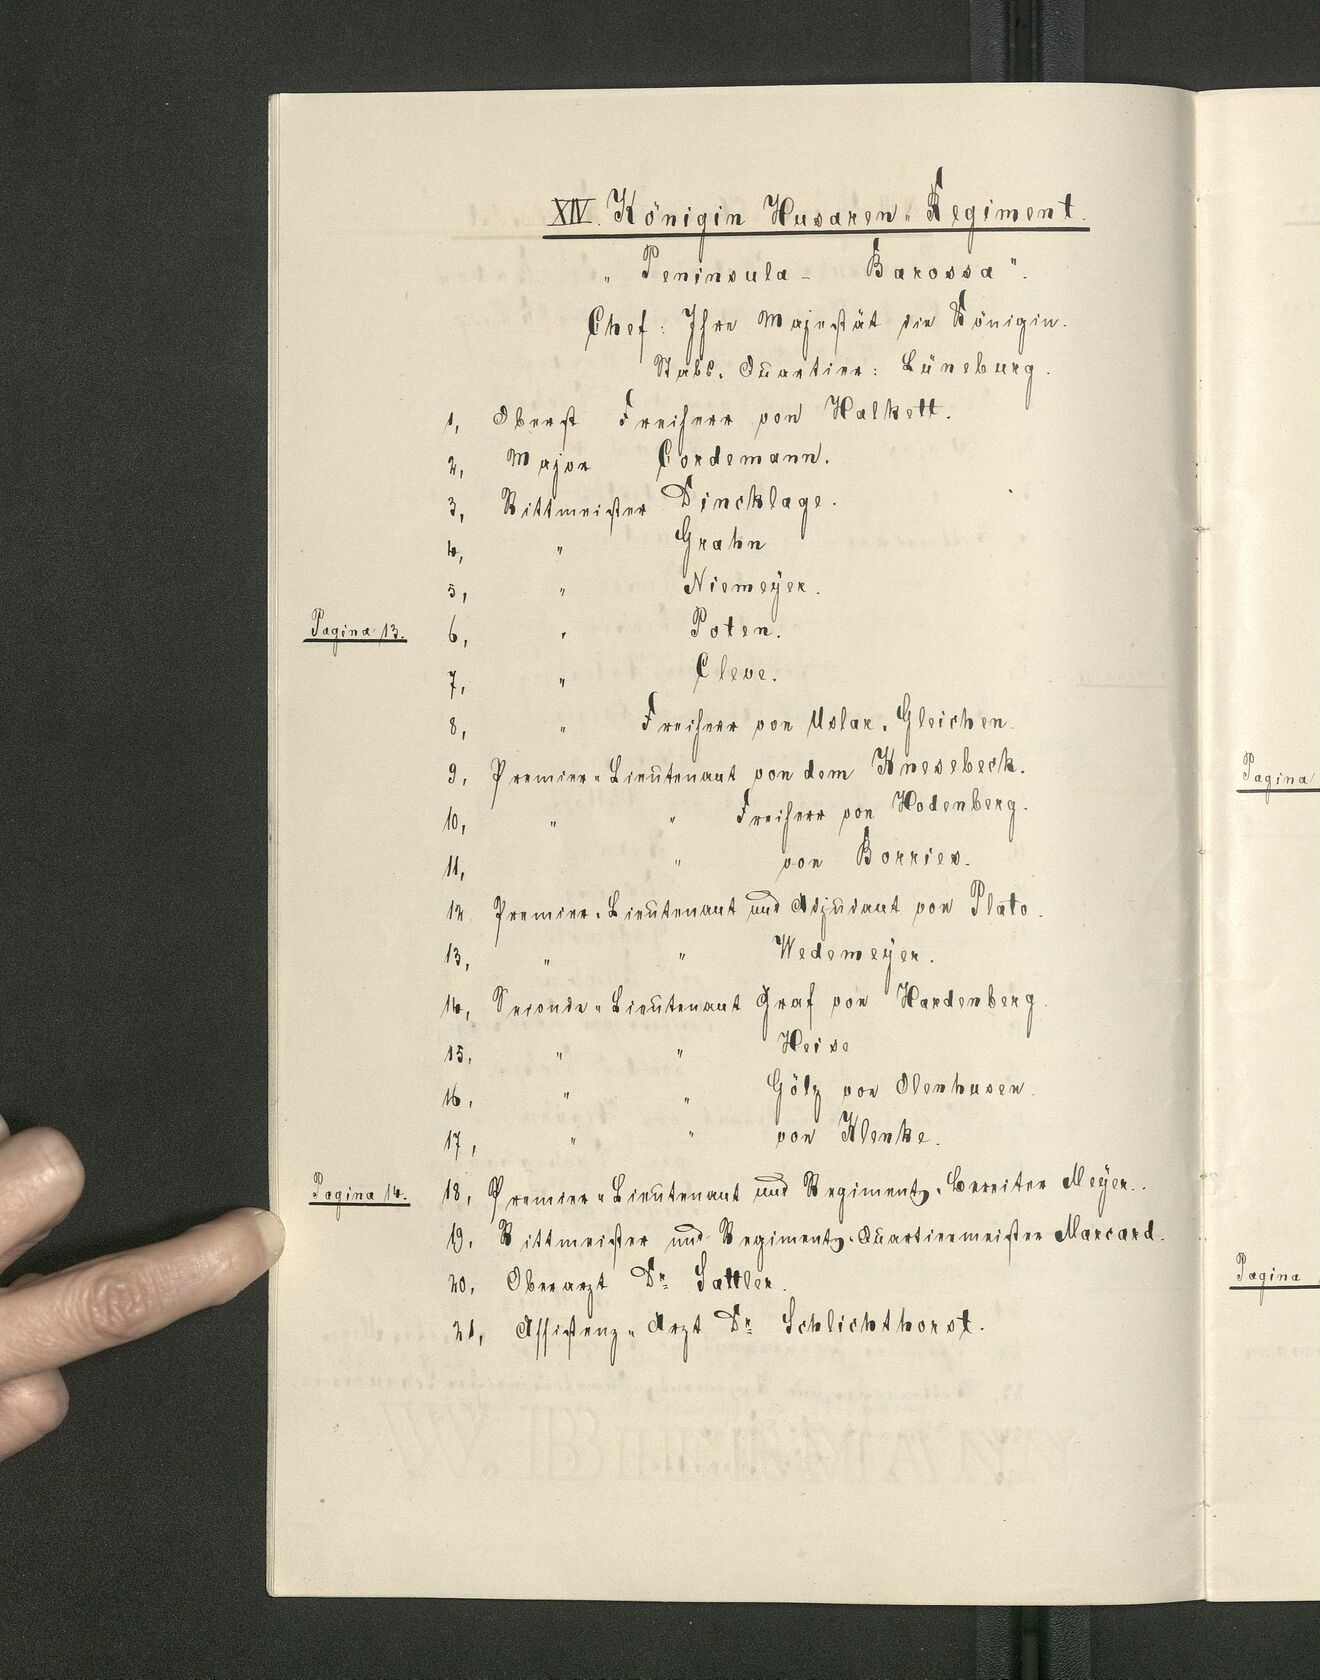 XIV. Königin Husaren-Regiment.
„Peninsula - Barossa".
Chef: Ihre Majestät die Königin.
Stabs-Quartier: Lüneburg.
1, Oberst Freiherr von Halkett.
2, Major Cordemann.
3, Rittmeister Dincklage.
4, " Grahn
5, " Niemeÿer.
Pagina 13. 6, " Poten.
7, " Cleve.
8, " Freiherr von Uslar-Gleichen.
9, Premier-Lieutenant von dem Knesebeck.
10, " " Freiherr von Hodenberg.
11, " von Borries.
12 Premier-Lieutenant und Adjudant von Plato.
13, " " Wedemeÿer.
14, Seconde-Lieutenant Graf von Hardenberg.
15, " " Heise
16, " " Gölz von Olenhusen.
17, " " von Klenke.
Pagina 14. 18, Premier-Lieutenant und Regiments-Bereiter Meÿer.
19, Rittmeister und Regiments-Quartiermeister Marcard.
20, Oberarzt Dr. Sattler.
21, Assistenz-Arzt Dr. Schlichthorst.
Pagina
Pagina